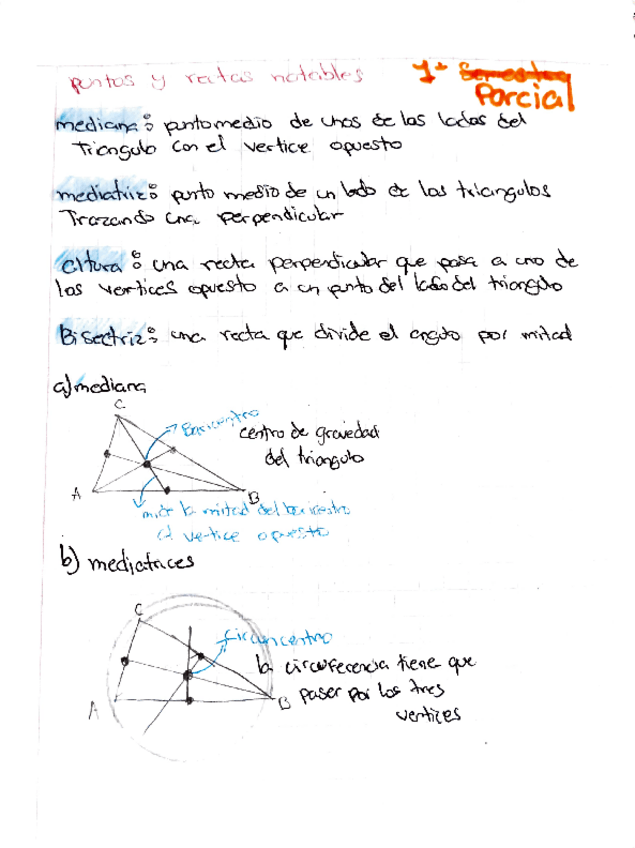 puntos y rectas notables
1º Semestre
Parcial
mediana: punto medio de unos de los lados del
Triangulo con el vertice opuesto
mediatriz: punto medio de un lado de los triangulos
Trazando una perpendicular
altura: una recta perpendicular que pasa a uno de
los vertices opuesto a un punto del lado del triangulo
Bisectriz: una recta que divide el angulo por mitad
a) mediana
C
Baricentro
centro de gravedad
del triangulo
A
B
la mitad del
al vertice opuesto
b) mediatrices
C
circuncentro
la circuferencia tiene que
pasar por los tres
vertices
A
B